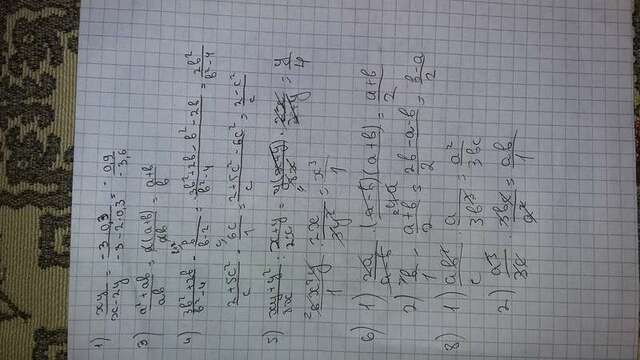 1) xy/(x-2y) = (-3 · 0,3)/(-3-2·0,3) = - 0,9/-3,6
3) (a²+ab)/ab = a(a+b)/ab = (a+b)/b
4) (3b²+2b)/(b²-4) - b/(b-2) = (3b²+2b-b²-2b)/(b²-4) = 2b²/(b²-4)
(2+5c²)/c - 6c/1 = (2+5c²-6c²)/c = (2-c²)/c
5) (xy+y²)/8x : (x+y)/2x = y(x+y)/8x · 2x/(x+y) = y/4
6x²y/1 · 2x/3y² = x³/1
6) 1) 2a/(a-b) · (a-b)(a+b)/4a = (a+b)/2
2) b/1 - (a+b)/2 = (2b-a-b)/2 = (b-a)/2
8) 1) ab²/c · a/3b³ = a²/3bc
2) a³/3c · 3bc/a² = ab/1